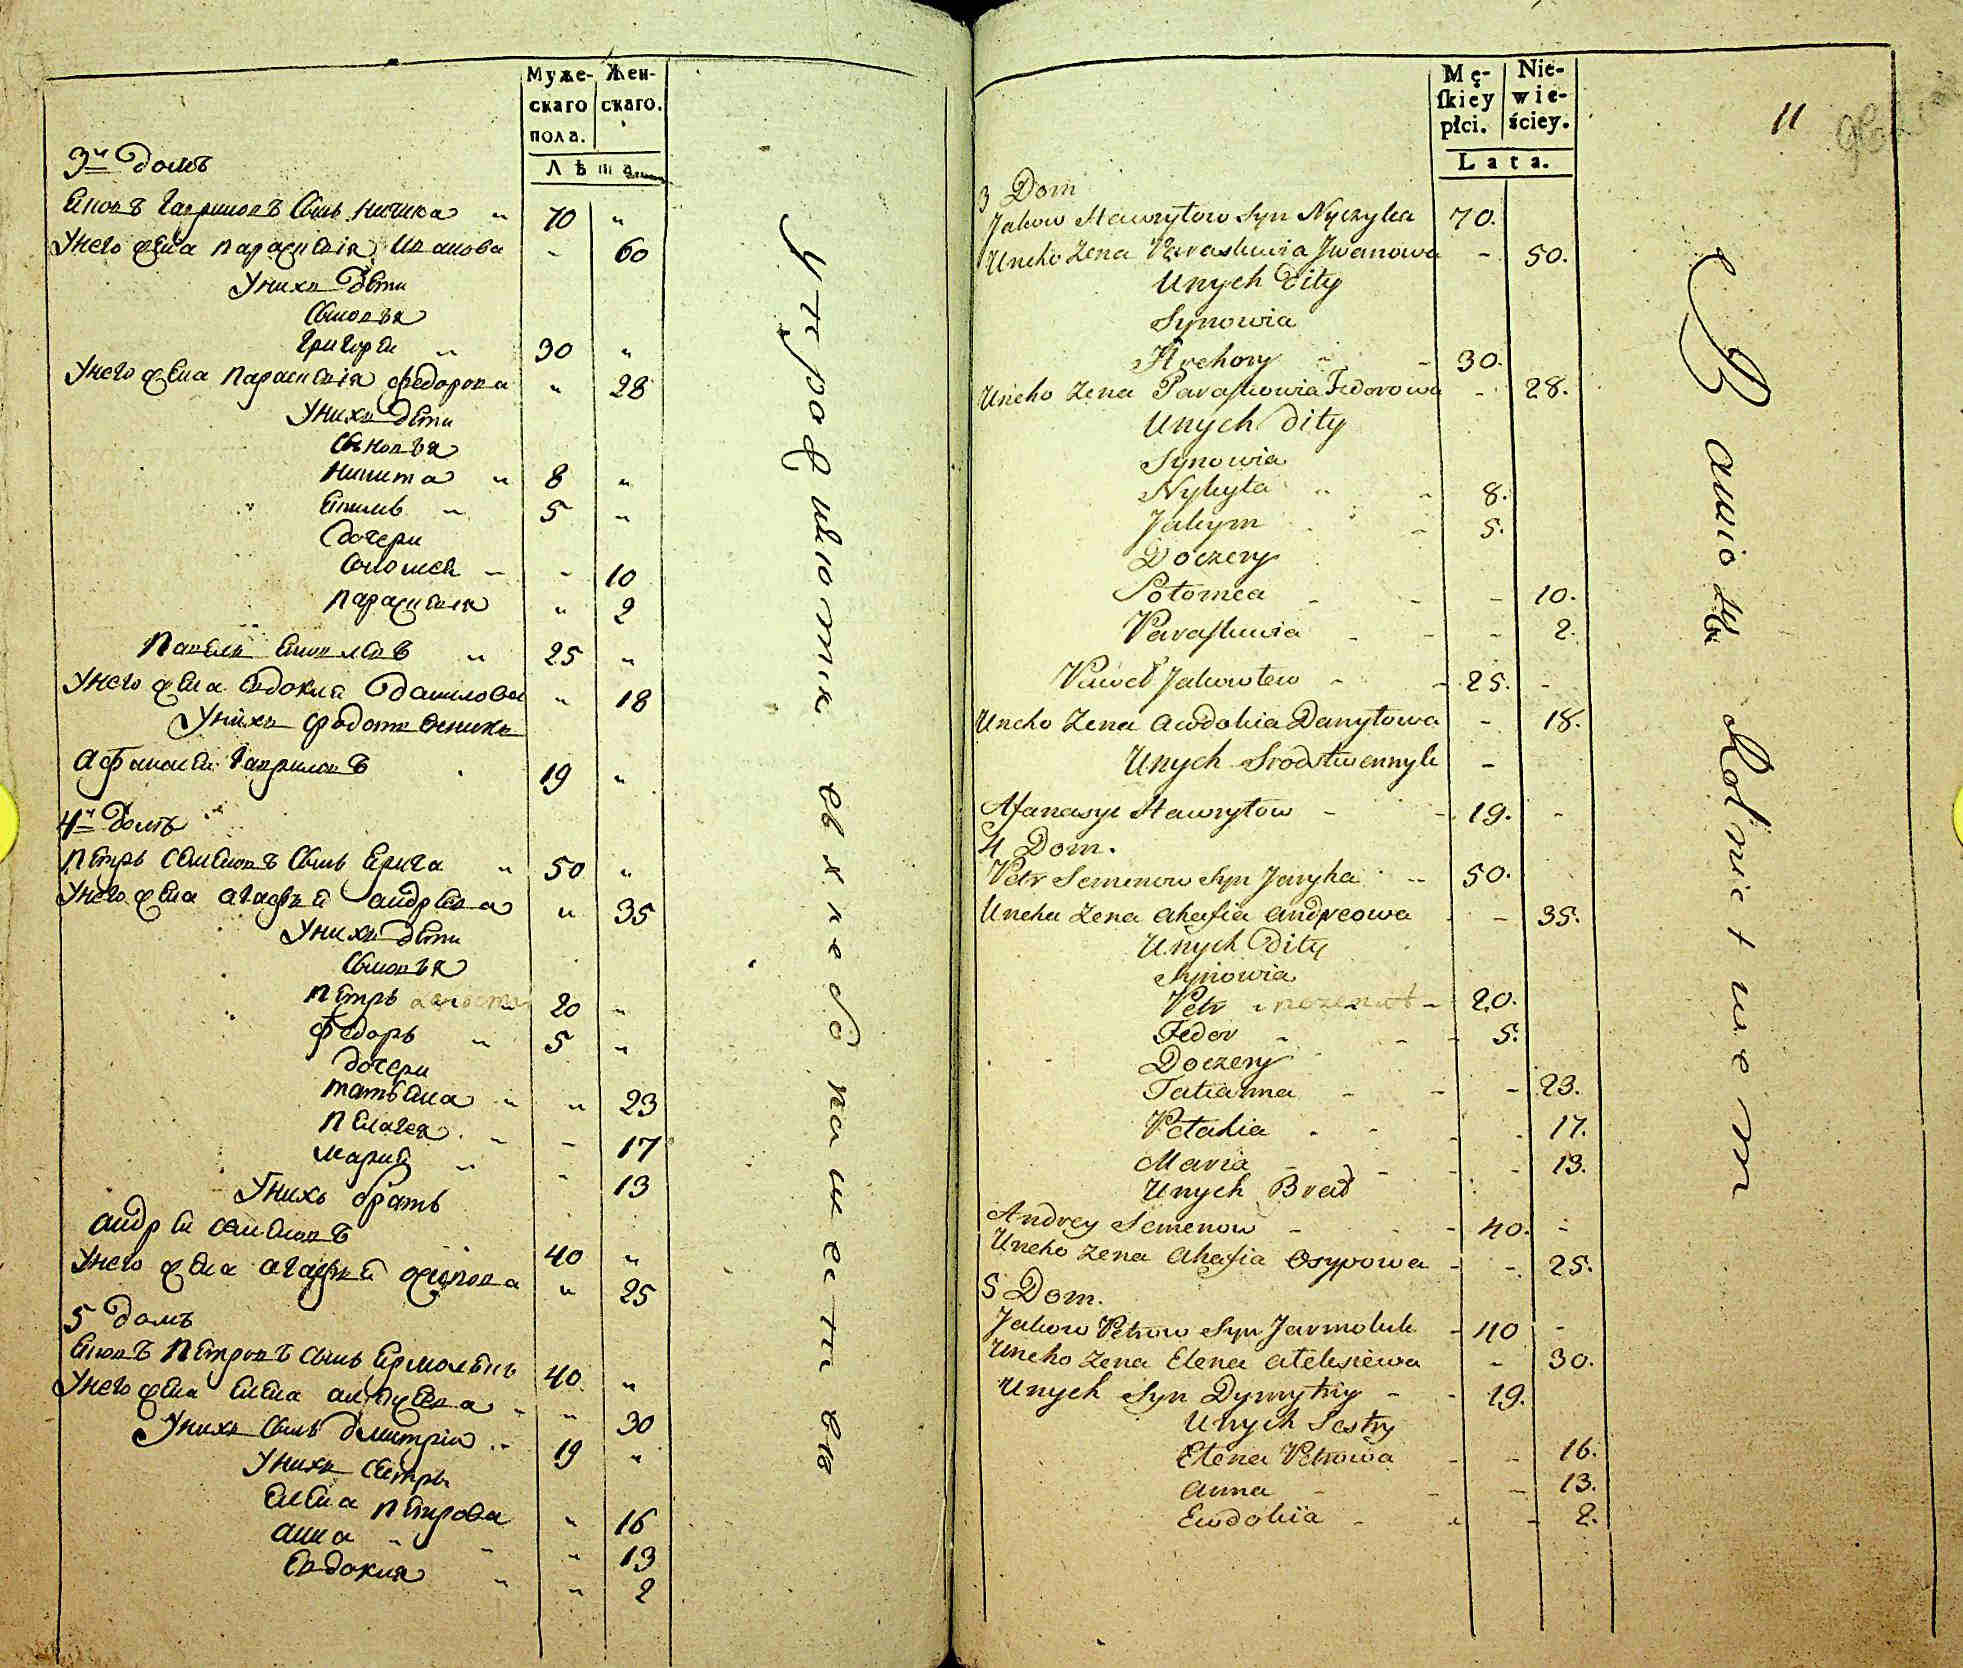 Муже-
скаго
пола.
Жен-
скаго.
Лѣта
3й Домъ
Яковъ Гавриловъ Сынъ Ничика " 70 "
Унего жена Параскевія Иванова - 60
Унихъ Дѣти
Сыновья
Григорей " 30 "
Унего жена Параскевія Федорова " 28
Унихъ Дѣти
Сыновья
Никита " 8 "
Екимъ " 5 "
Дочери
Соломея - - 10
Параскевія " 2
Павелъ Яковлевъ " 25 "
Унего жена Евдокия Данилова " 18
Унихъ
Афанасей Гавриловъ 19 "
4й Домъ
Петръ Семеновъ Сынъ " 50 "
Унего жена Агафия Андреева " 35
Унихъ Дѣти
Сыновья
Петръ 20 "
Федоръ " 5 "
Дочери
Татьяна " " 23
Пелагея - - 17
Мария " - 13
Унихъ братъ
Андрей Семеновъ 40 "
Унего жена Агафия Осипова " 25
5 Домъ
Яковъ Петровъ Сынъ Ермолень 40 "
Унего жена Елена Алексеева - 30
Унихъ Сынъ Дмитрій " 19 "
Унихъ Сестры
Елена Петрова " 16
Анна " " 13
Евдокия " " 2
Mę-
ſkiey
płci.
Nie-
wie-
ściey.
Lata.
11
3 Dom
Jakow Hawryłow Syn Nyczyka 70.
Uneho Zena Paraskuwia Jwanowa - 50.
Unych Dity
Synowia
Hrehory - - 30.
Uneho Zena Paraſkowia Fedorowa - 28.
Unych Dity
Synowia
Nykyta " - 8.
Jakym - - 5.
Doczery
Sołomea - - - 10.
Paraſkuwia - - - 2.
Paweł Jakowlew - - 25. -
Uneho Zena Awdokia Danyłowa - 18.
Unych Srodstwennyk -
Afanasyi Hawryłow - - 19. -
4 Dom.
Petr Semenow Syn Jaryha - 50.
Uneha Zena Ahafia Andreowa - - 35.
Unych Dity
Synowia
Petr - 20.
Fedor - - - 5.
Doczery
Tatianna - - - 23.
Pełahia - - - - 17.
Maria - - - - 13.
Unych Brat
Andrey Semenow - - - 40. -
Uneho Zena Ahafia Osypowa - - 25.
5 Dom.
Jakow Petrow Syn Jarmoluk - 40 -
Uneho Zena Elena Ałeksiewa - 30.
Unych Syn Dymytriy - - 19.
Unych Sestry
Ełena Petrowa - - 16.
Anna - - - 13.
Ewdokia - - - 2.